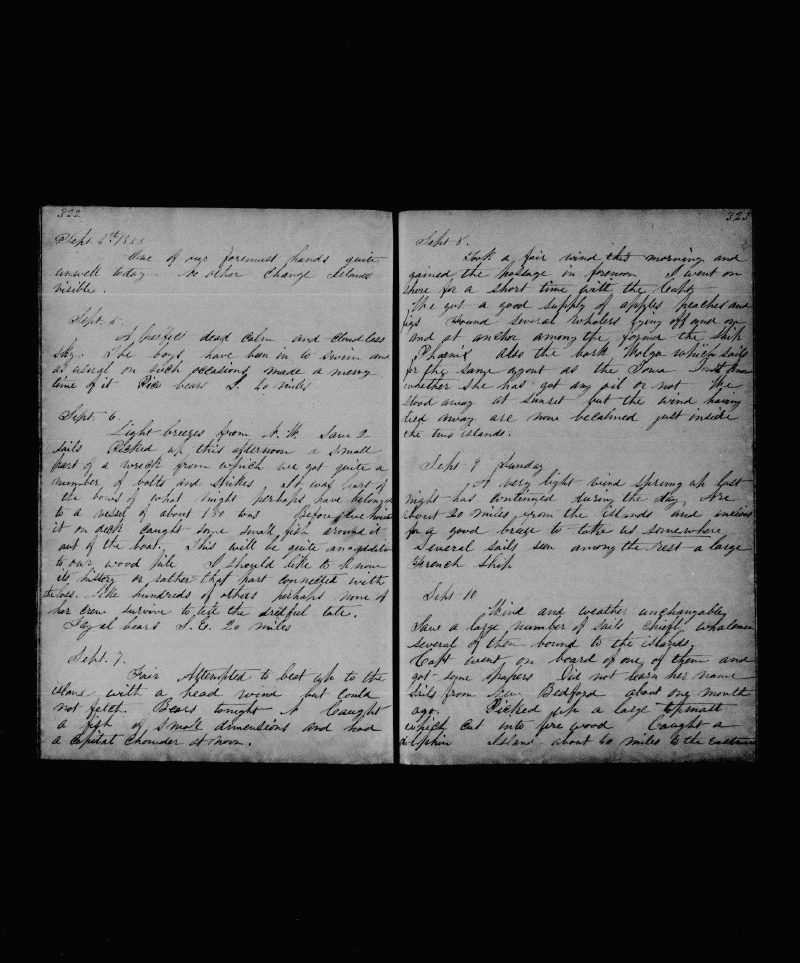 322
Sept. 4th
One of our foremost hands quite
unwell today. No other change Islands
visible.
Sept. 5.
A perfect dead calm and cloudless
sky. The boys have been in to swim and
as useral on such occasions made a merry
time of it Pico bears S. 20 miles
Sept. 6.
Light breezes from N.W. Saw 2
sails Picked up this afternoon a small
part of a wreck from which we got quite a
number of bolts and It was part of
the bows of what might perhaps have belonged
to a vessel of about 130 tons Before we
it on deck caught some small fish around it
out of the boat. This will be quite an addition
to our wood pile I should like to know
its history or rather that part connected with
the loss. Like hundreds of others perhaps none of
her crew survive to the dredful tale.
Fayal bears S.E. 20 miles
Sept. 7.
Fair Attempted to beat up to the
island with a head wind but could
not fetch. Bears tonight N. Caught
a fish of small dimensions and had
a capital chowder at noon.
323
Sept 8.
Took a fair wind this morning and
gained the passage in forenoon I went on
shore for a short time with the Capt.
We got a good supply of apples peaches and
figs Found several whalers lying off and on
and at anchor among the former the ship
Phœnix Also the bark Wolga which sails
for the same agent as the Iowa
whether she has got any oil or not We
stood away at sunset but the wind having
died away are now becalmed just inside
the two islands.
Sept 9 Sunday
A very light wind sprung up last
night has continued during the day Are
about 20 miles from the islands and
for a good breeze to take us somewhere
Several sails seen among the rest a large
French ship
Sept 10
Wind and weather unchangable
Saw a large number of sails chiefly whalemen
several of them bound to the islands.
Capt went on board of one of them and
got some papers Did not learn her name
Sails from New Bedford about one month
ago. Picked up a large
which cut into fire wood Caught a
dolphin Island about 60 miles to the eastward